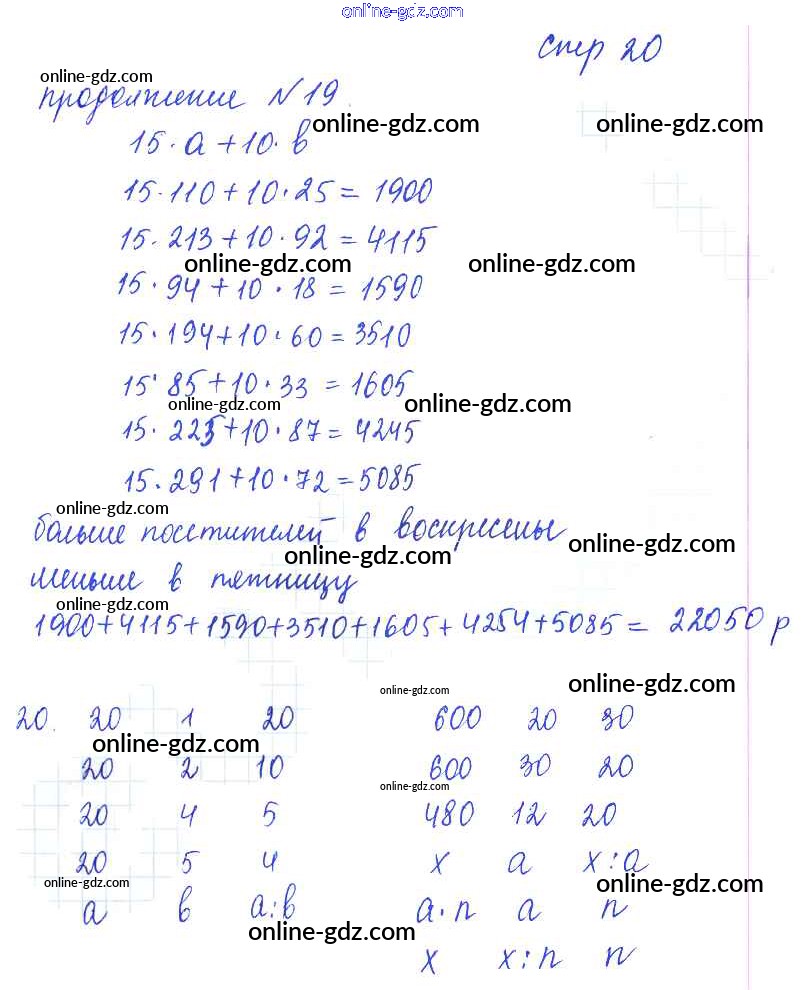 online-gdz.com
стр 20
online-gdz.com
продолжение №19
online-gdz.com online-gdz.com
15·a+10·b
15·110+10·25=1900
15·213+10·92=4115
online-gdz.com online-gdz.com
15·94+10·18=1590
15·194+10·60=3510
15·85+10·33=1605
online-gdz.com online-gdz.com
15·225+10·87=4245
15·291+10·72=5085
online-gdz.com
больше посетителей в воскресенье
online-gdz.com online-gdz.com
меньше в пятницу
online-gdz.com
1900+4115+1590+3510+1605+4254+5085=22050 р
online-gdz.com online-gdz.com
20. 20 1 20 600 20 30
online-gdz.com
20 2 10 600 30 20
online-gdz.com
20 4 5 480 12 20
20 5 4 x a x:a
online-gdz.com online-gdz.com
a b a:b a·n a n
online-gdz.com
x x:n n